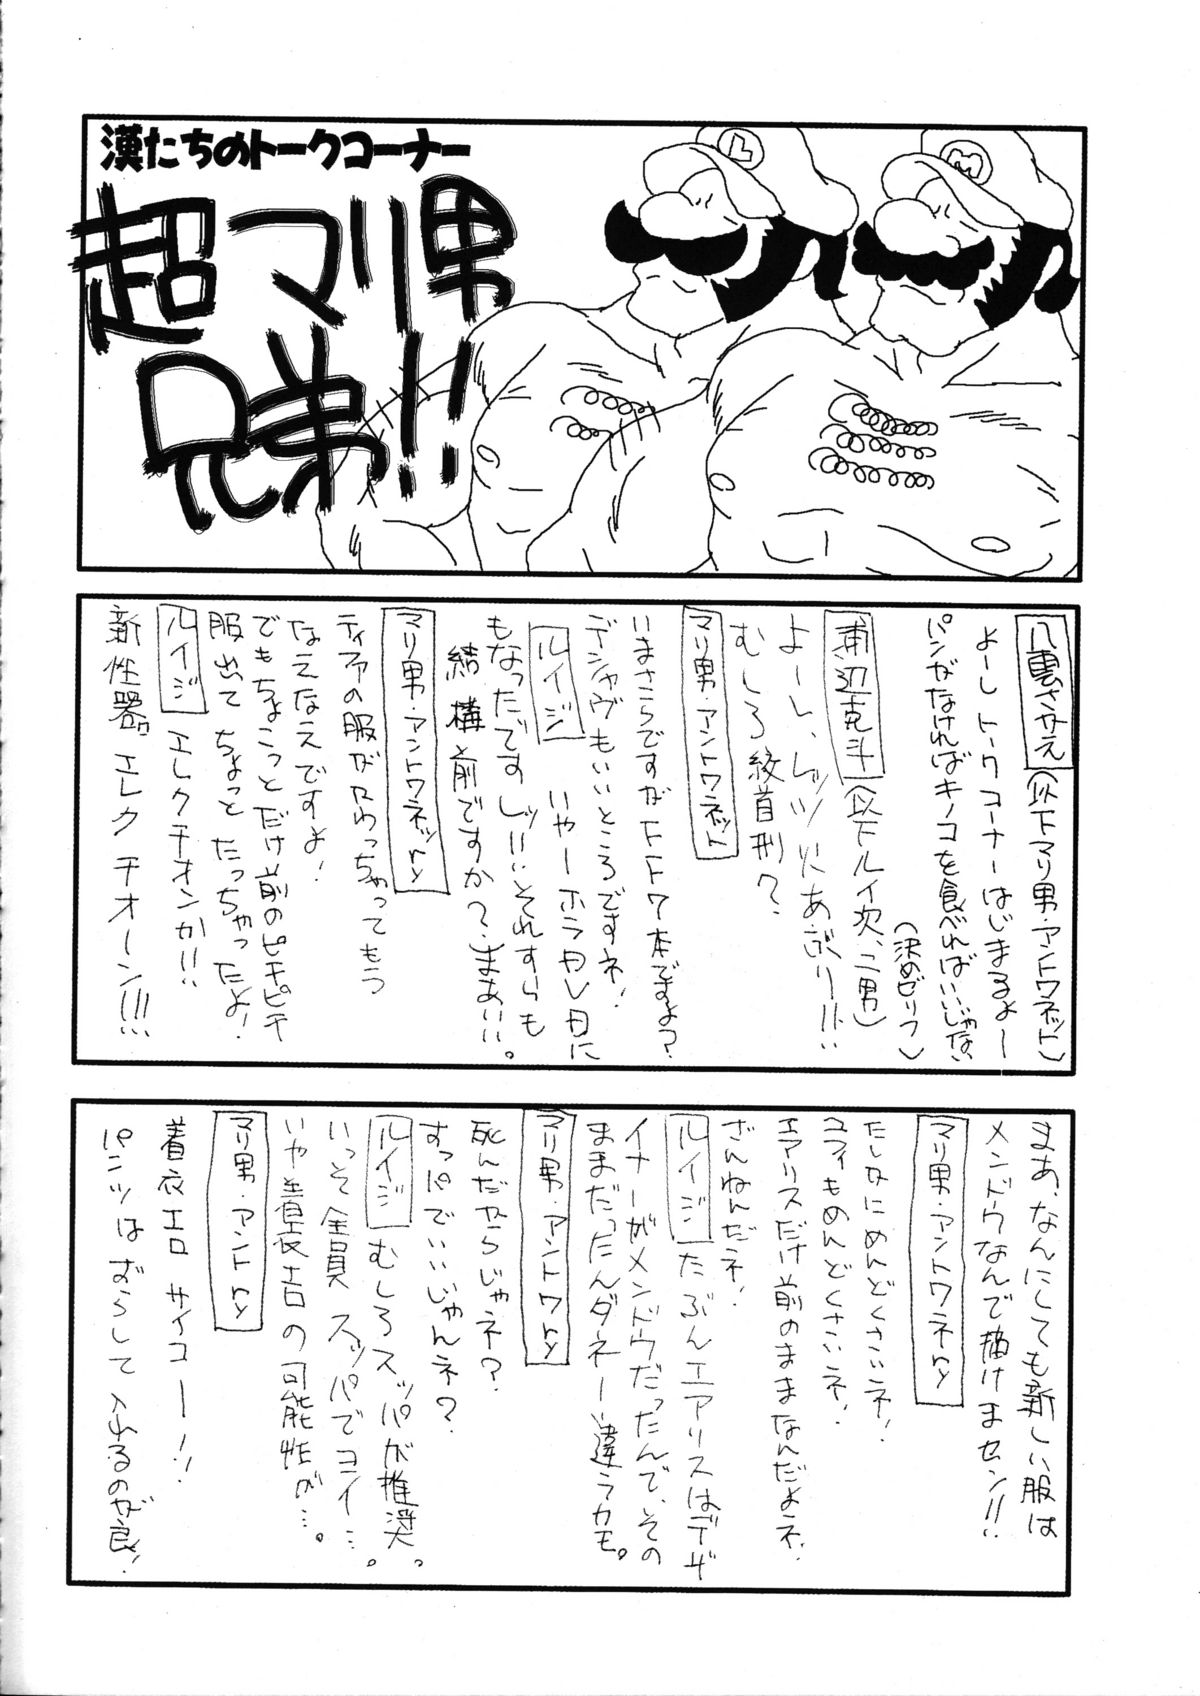 漢たちのトークコーナー
超マリ男
兄弟!!
L
M
八雲さかえ(以下マリ男・アントワネット)
よーし トークコーナーはじまるよー
パンがなければキノコを食べればいいじゃない
(決めゼリフ)
浦辺克斗(以下ルイ次、二男)
よーし、レッツ火あぶり!!
むしろ絞首刑?
マリ男・アントワネット
いまさらですがFF7本ですよ?
デジャヴもいいところですネ!
ルイジ いやーホラAC見に
もなったですしッ!!それすらも
結構前ですか?まあいい。
マリ男・アントワネッry
ティファの服がかわっちゃってもう
なえなえですよ!
でもちょこっとだけ前のピチピチ
服出てちょっとたっちゃったよ!
ルイジ エレクチオンか!!!
新性器。エレクチオーン!!!
まあ、なんにしても新しい服は
メンドウなんで描けませン!!
マリ男・アントワネry
たしかにめんどくさいネ!
ユフィもめんどくさいネ!
エアリスだけ前のままなんだよネ!
ざんねんだネ!
ルイジ たぶんエアリスはデザ
イナーがメンドウだったんで、その
ままだったんダネー違うカモ。
マリ男・アントワry
死んだからじゃネ?
すっパでいいじゃんネ?
ルイジ むしろスッパが推奨。
いっそ全員スッパでコイ…。
いや着衣エロの可能性が…。
マリ男・アントry
着衣エロ サイコー!!
パンツはずらして入れるのが良!